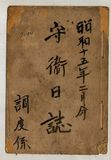 昭和十五年二月起
守衛日誌
調度係